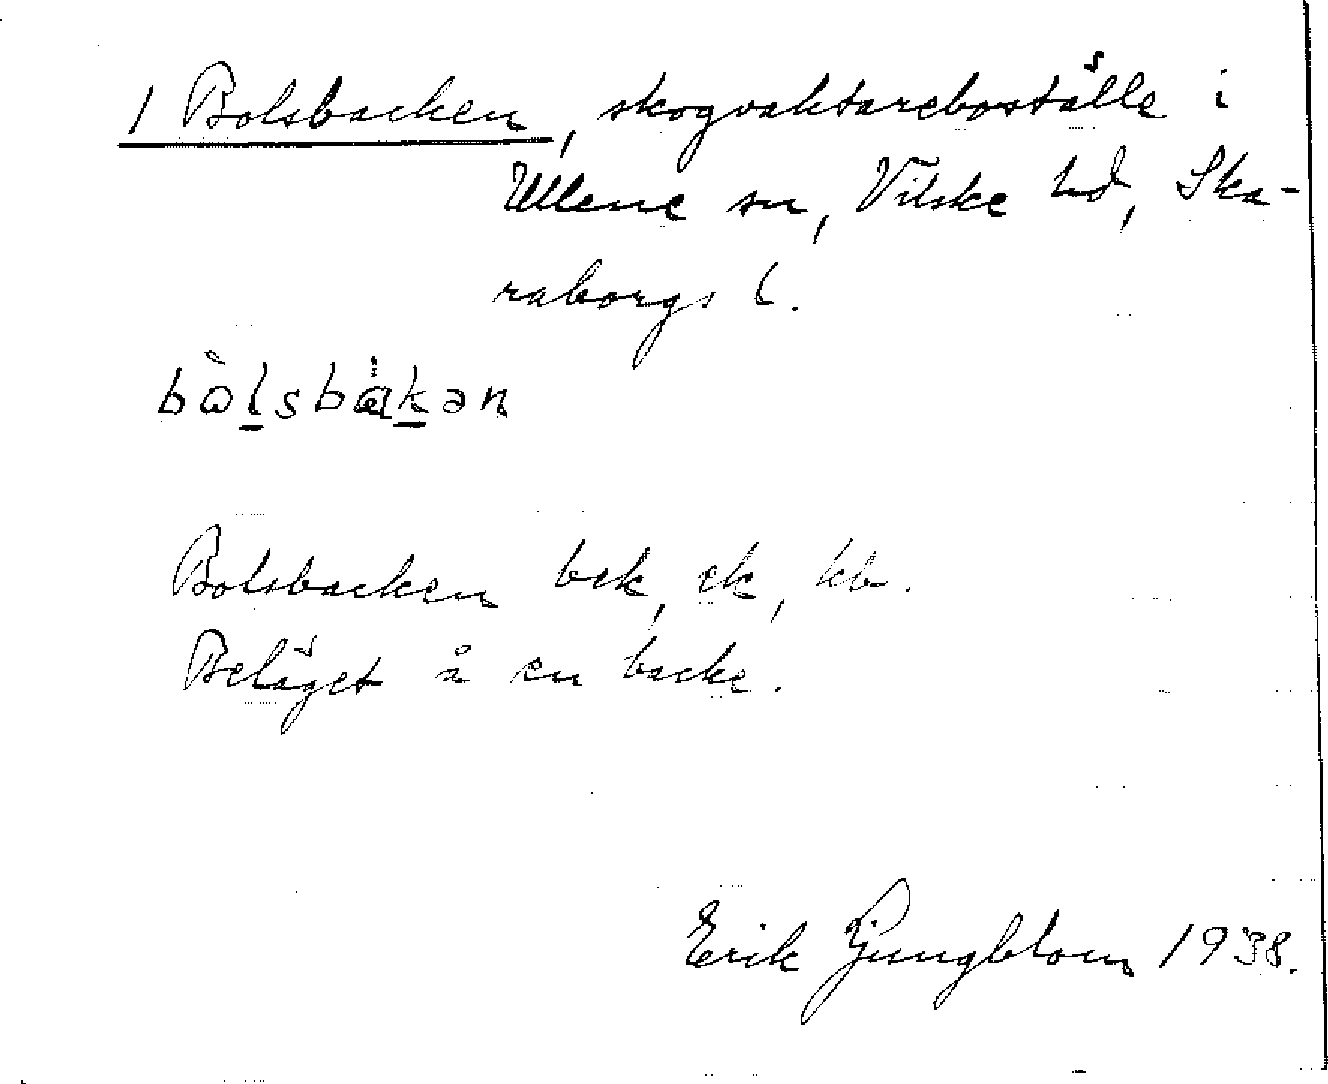 1 Bolsbacken, skogvaktareboställe i
Ullene sn, Vilske hd, Ska-
raborgs l.
bòlsbäkən
Bolsbacken bek, ek, kb.
Beläget å en backe.
Erik Ljungblom 1938.